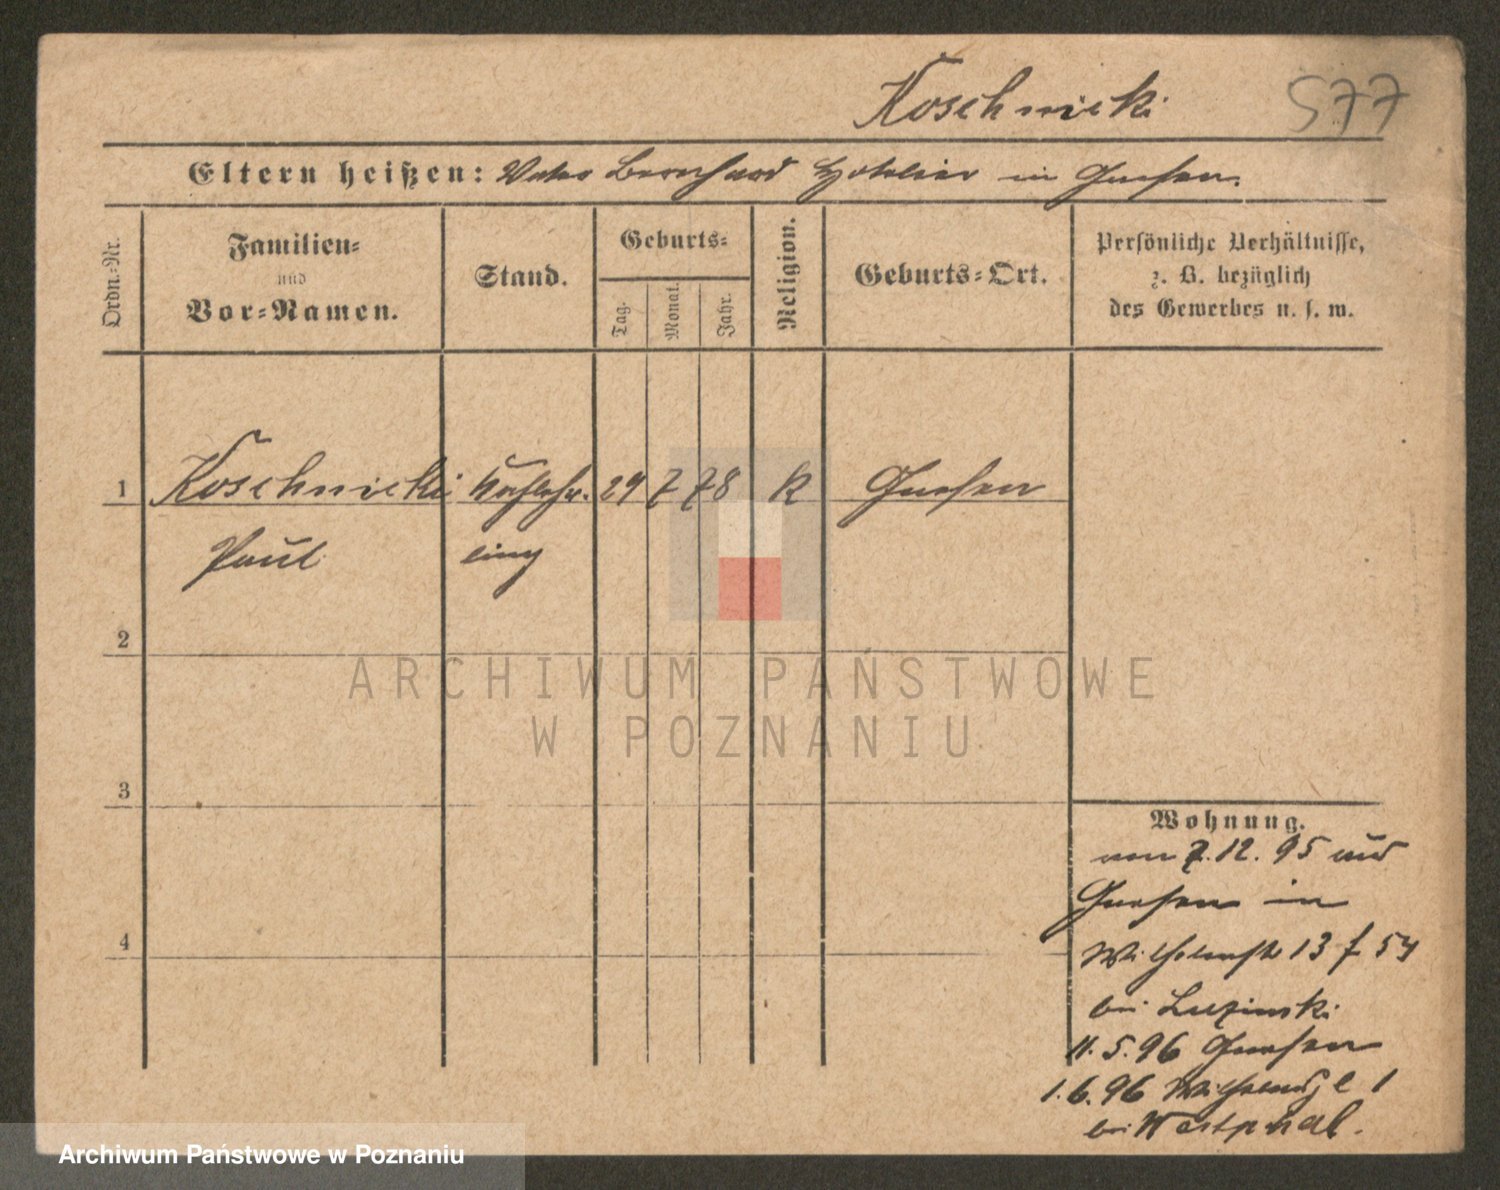 Koschnicki 577
Eltern heißen: Vater Bernhard Hotelier in Gnesen.
Ordn.-Nr.
Familien-
und
Vor-Namen.
Stand.
Geburts-
Tag.
Monat.
Jahr.
Religion.
Geburts-Ort.
Persönliche Verhältnisse,
z. B. bezüglich
des Gewerbes u. s. w.
1 Koschnicki 29 7 78 K Gnesen
Paul ling
2
3
4
Wohnung.
von 7.12.95 aus
Gnesen in
Wilhelmstr 13
bei
11.5.96 Gnesen
1.6.96 1
bei Westphal.
ARCHIWUM PAŃSTWOWE
W POZNANIU
Archiwum Państwowe w Poznaniu